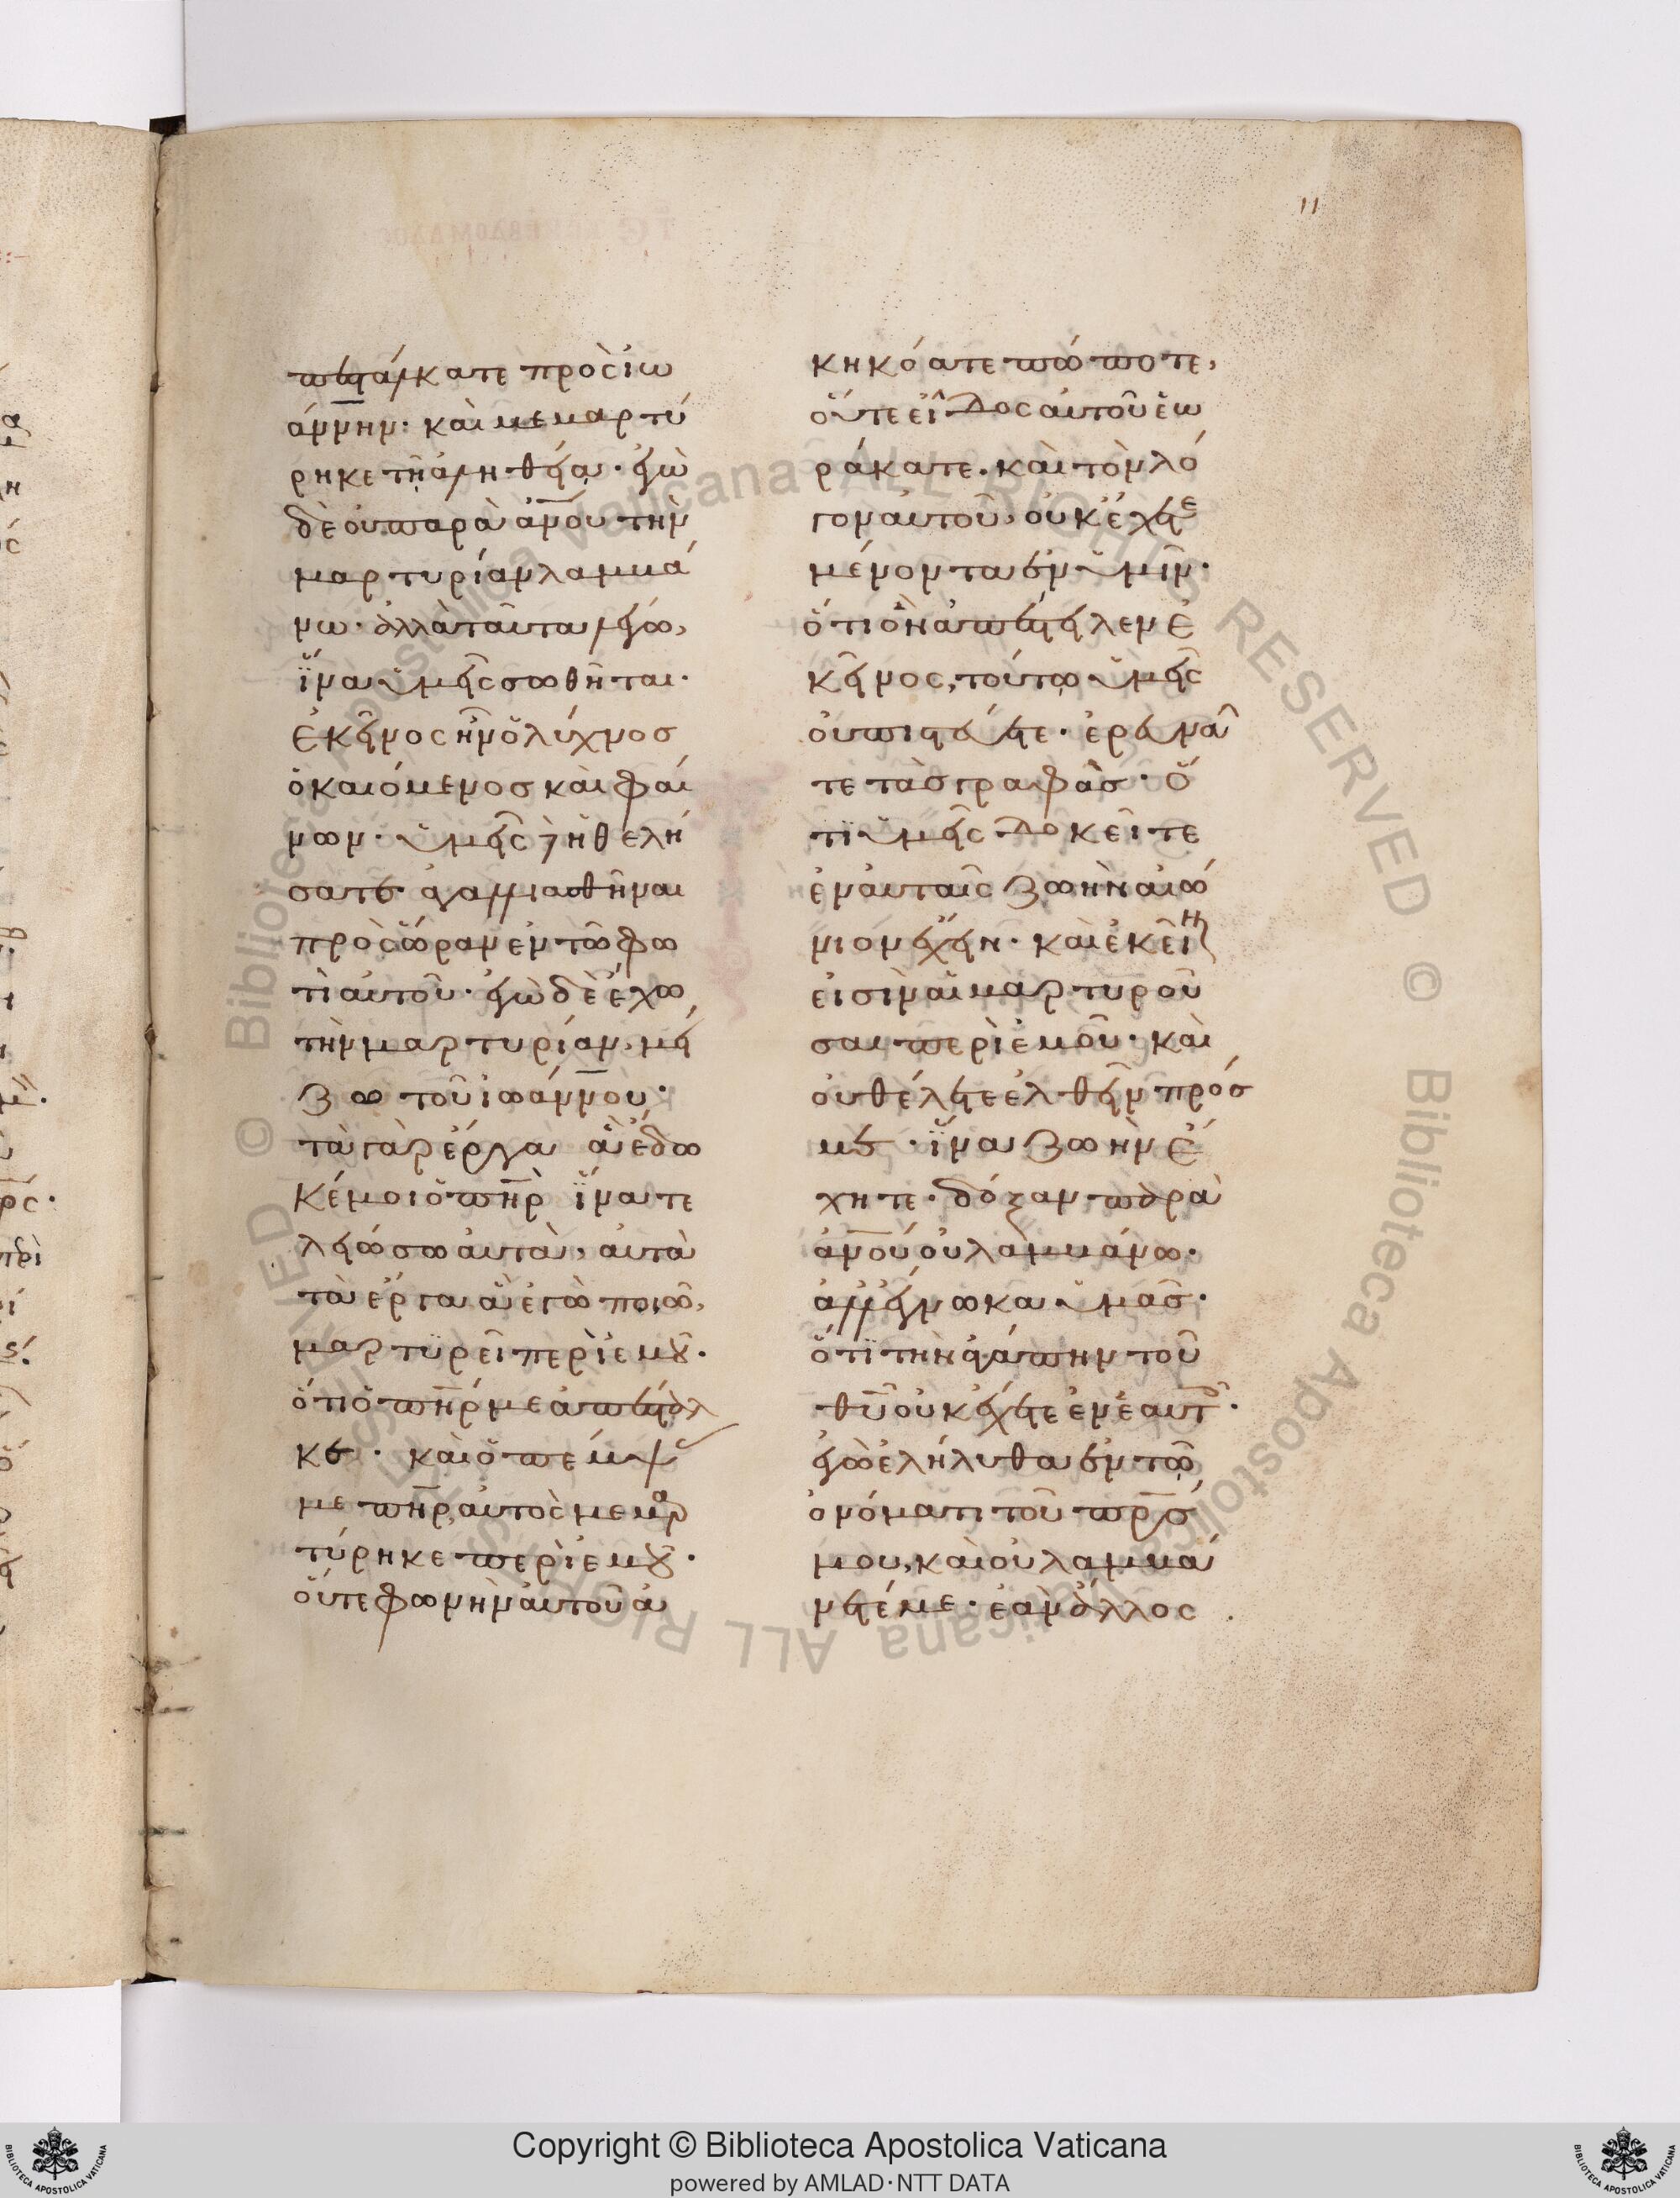 11
πεστάλκατε πρὸς ἰω
άννην· καὶ μεμαρτύ
ρηκε τῆ ἀληθεία· ἐγὼ
δὲ οὐ παρὰ ἀνου τὴν
μαρτυρίαν λαμβά
νω· ἀλλὰ ταῦτα λέγω,
ἵνα ὑμεῖς σωθῆται·
ἐκεῖνος ἦν ὁ λύχνος
ὁ καιόμενος καὶ φαί
νων· ὑμεῖς δὲ ἠθελή
σατε ἀγαλλιασθῆναι
πρὸς ὥραν ἐν τῶ φω
τὶ αὐτοῦ· ἐγὼ δὲ ἔχω
τὴν μαρτυρίαν, μεί
ζω τοῦ ἰωάννου·
τὰ γὰρ ἔργα ἃ ἔδω
κέ μοι ὁ πηρ ἵνα τε
λειώσω αὐτὰ, αὐτὰ
τὰ ἔργα ἃ ἐγὼ ποιῶ,
μαρτυρεῖ περὶ ἐμοῦ·
ὅτι ὁ πηρ με ἀπέσταλ
κε· καὶ ὁ πέμψας
με πηρ, αὐτὸς μεμαρ
τύρηκε περὶ ἐμοῦ·
οὔτε φωνὴν αὐτοῦ ἀ
κηκόατε πώποτε,
οὔτε εἶδος αὐτοῦ ἑω
ράκατε· καὶ τὸν λό
γον αὐτοῦ, οὐκ ἔχετε
μένοντα ἐν ὑμῖν·
ὅτι ὃν ἀπέστειλεν ἐ
κεῖνος, τούτω ὑμεῖς
οὐ πιστεύετε· ἐρευνᾶ
τε τὰς γραφὰς· ὅ
τι ὑμεῖς δοκεῖτε
ἐν αὐταῖς ζωὴν αἰώ
νιον ἔχειν· καὶ ἐκεῖναι
εἰσὶν αἱ μαρτυροῦ
σαι περὶ ἐμοῦ· καὶ
οὐ θέλετε ἐλθεῖν πρός
με· ἵνα ζωὴν ἔ
χητε· δόξαν παρὰ
ἀνου οὐ λαμβάνω·
ἀλλ' ἔγνωκα ὑμᾶς·
ὅτι τὴν ἀγάπην τοῦ
θυ οὐκ ἔχετε ἐν ἑαυτοῖς·
ἐγὼ ἐλήλυθα ἐν τῶ
ὀνόματι τοῦ πρς
μου, καὶ οὐ λαμβά
νετέ με· ἐὰν ἄλλος
Copyright © Biblioteca Apostolica Vaticana
powered by AMLAD·NTT DATA